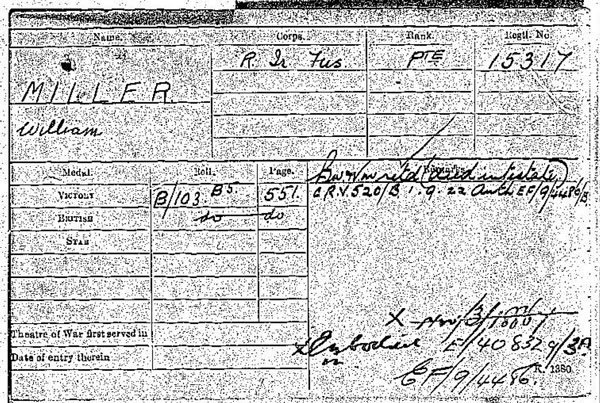 Name.
Corps.
Rank.
Regtl. No.
R. Ir. Fus
PTE
15317
MILLER
William
Medal.
Roll.
Page.
Remarks.
VICTORY
B/103 B5.
551.
died intestate)
BRITISH
do
do
O.R.V. 520/B 1.9.22 Auth EF/9/4486/B
STAR
Theatre of War first served in
Date of entry therein
E/40832
EF/9/4486.
K. 1380.